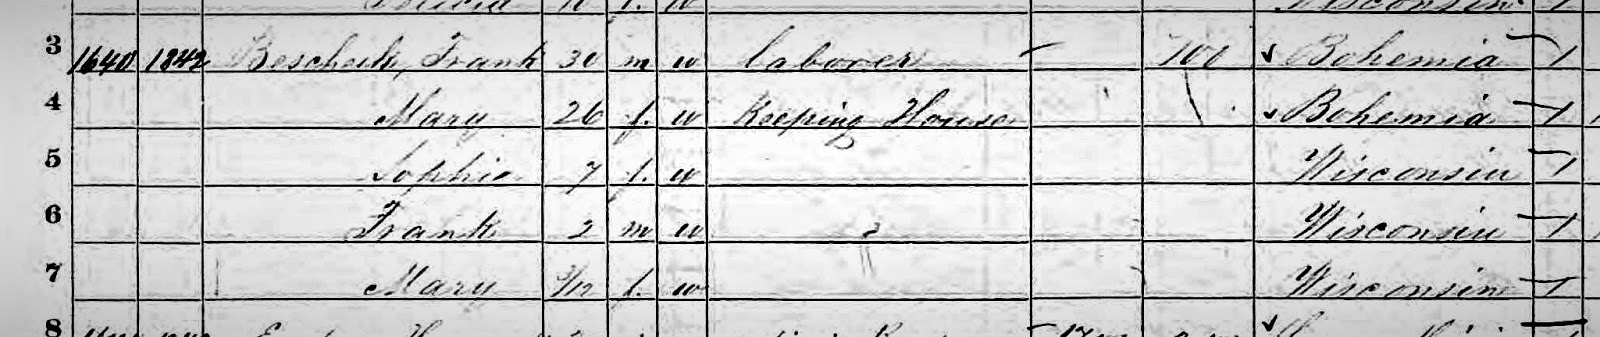 Wisconsin 1
3 1640 1842 Bescheck, Frank 30 m w laborer 100 Bohemia 1
4 Mary 26 f. w Keeping House Bohemia 1
5 Sophia 7 f. w Wisconsin 1
6 Frank 2 m w Wisconsin 1
7 Mary f. w Wisconsin 1
8